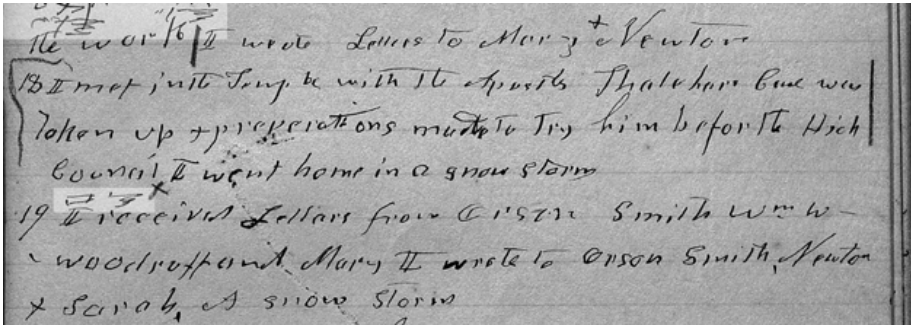 the work 16 I wrote Letters to Mary & Newton
18 I met in the Temple with the Apostls Thatchers Case was
Taken up & preperations made to Try him befor the High
Council I went home in a snow storm
19 I received Letters from Orson Smith Wm W-
woodruff and Mary I wrote to Orson Smith, Newton
& Sarah, A snow Storm